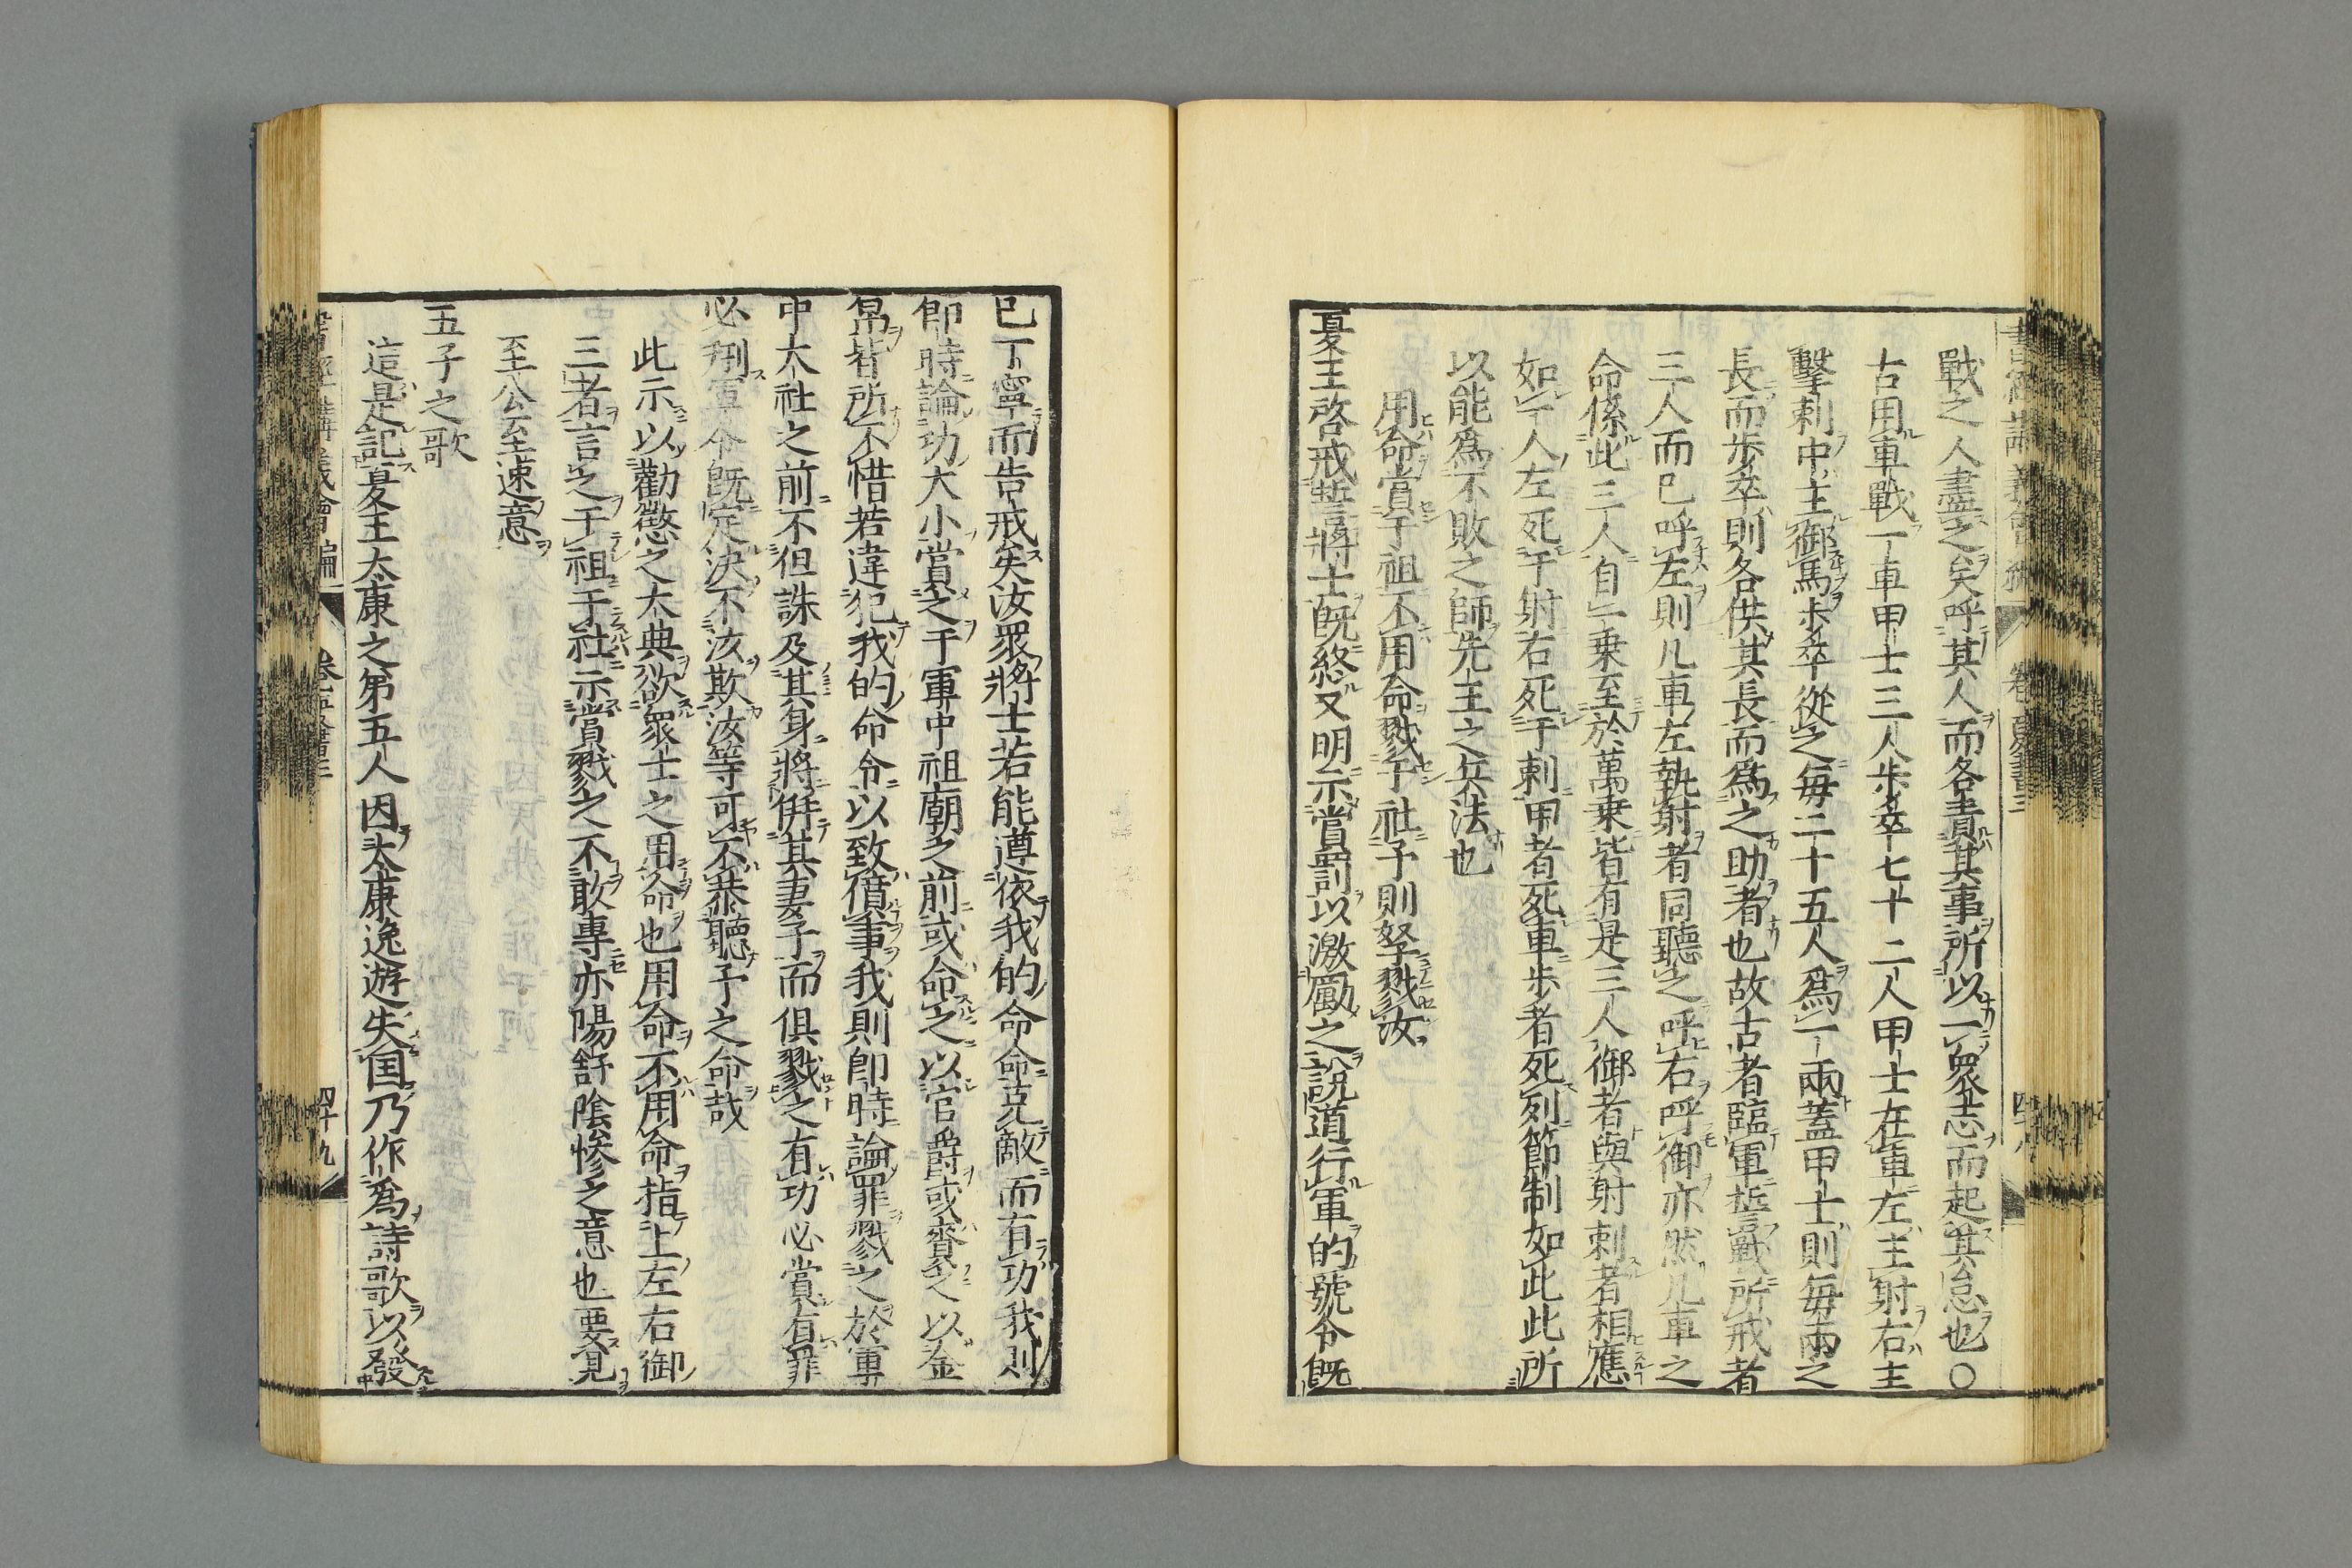 戰之人盡之矣呼其人而各責其事所以一衆志而起其怠也〇
古用車戰一車甲士三人步卒七十二人甲士在車左主射右主
擊刺中主御馬步卒從之每二十五人爲一兩蓋甲士則每兩之
長而步卒則各供其長而爲之助者也故古者臨軍誓戰所戒者
三人而已呼左則凡車左執射者同聽之呼右呼御亦然凡車之
命係此三人自一乗至於萬乗皆有是三人御者與射刺者相應
如一人左死于射右死于刺甲者死車步者死列節制如此此所
以能爲不敗之師先王之兵法也
用命賞于祖不用命戮于社予則孥戮汝
夏王啓戒誓將士既終又明示賞罰以激勵之說道行軍的號令既
已丁寧而告戒矣汝眾將士若能遵依我的命命克敵而有功我則
即時論功大小賞之于軍中祖廟之前或命之以官爵或賚之以金
帛皆所不惜若違犯我的命令以致僨事我則即時論罪戮之於軍
中大社之前不但誅及其身將併其妻子而俱戮之有功必賞有罪
必刑軍令既定決不汝欺汝等可不恭聽予之命哉
此示以勸懲之大典欲眾士之用命也用命不用命指上左右御
三者言之于祖于社示賞戮之不敢專亦陽舒陰慘之意也要見
至公至速意
五子之歌
這是記夏王太康之第五人因太康逸遊失国乃作爲詩歌以發
書經講義會編 卷 夏書三 四十九